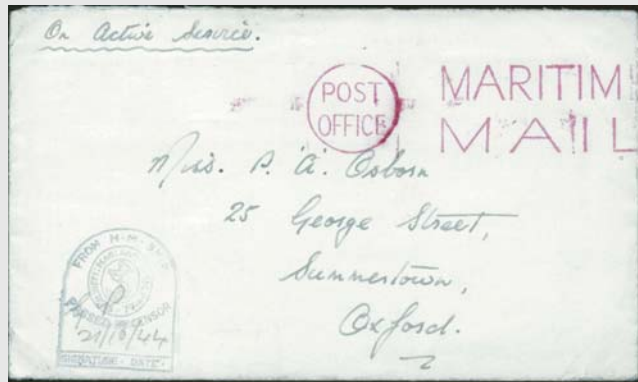 On Active Service.
POST
OFFICE
MARITIM
MAIL
Miss. P. A. Osborn
25 George Street,
Summertown,
Oxford.
FROM H.M. SHIP
PASSED BY CENSOR
21/10/44
SIGNATURE - DATE -